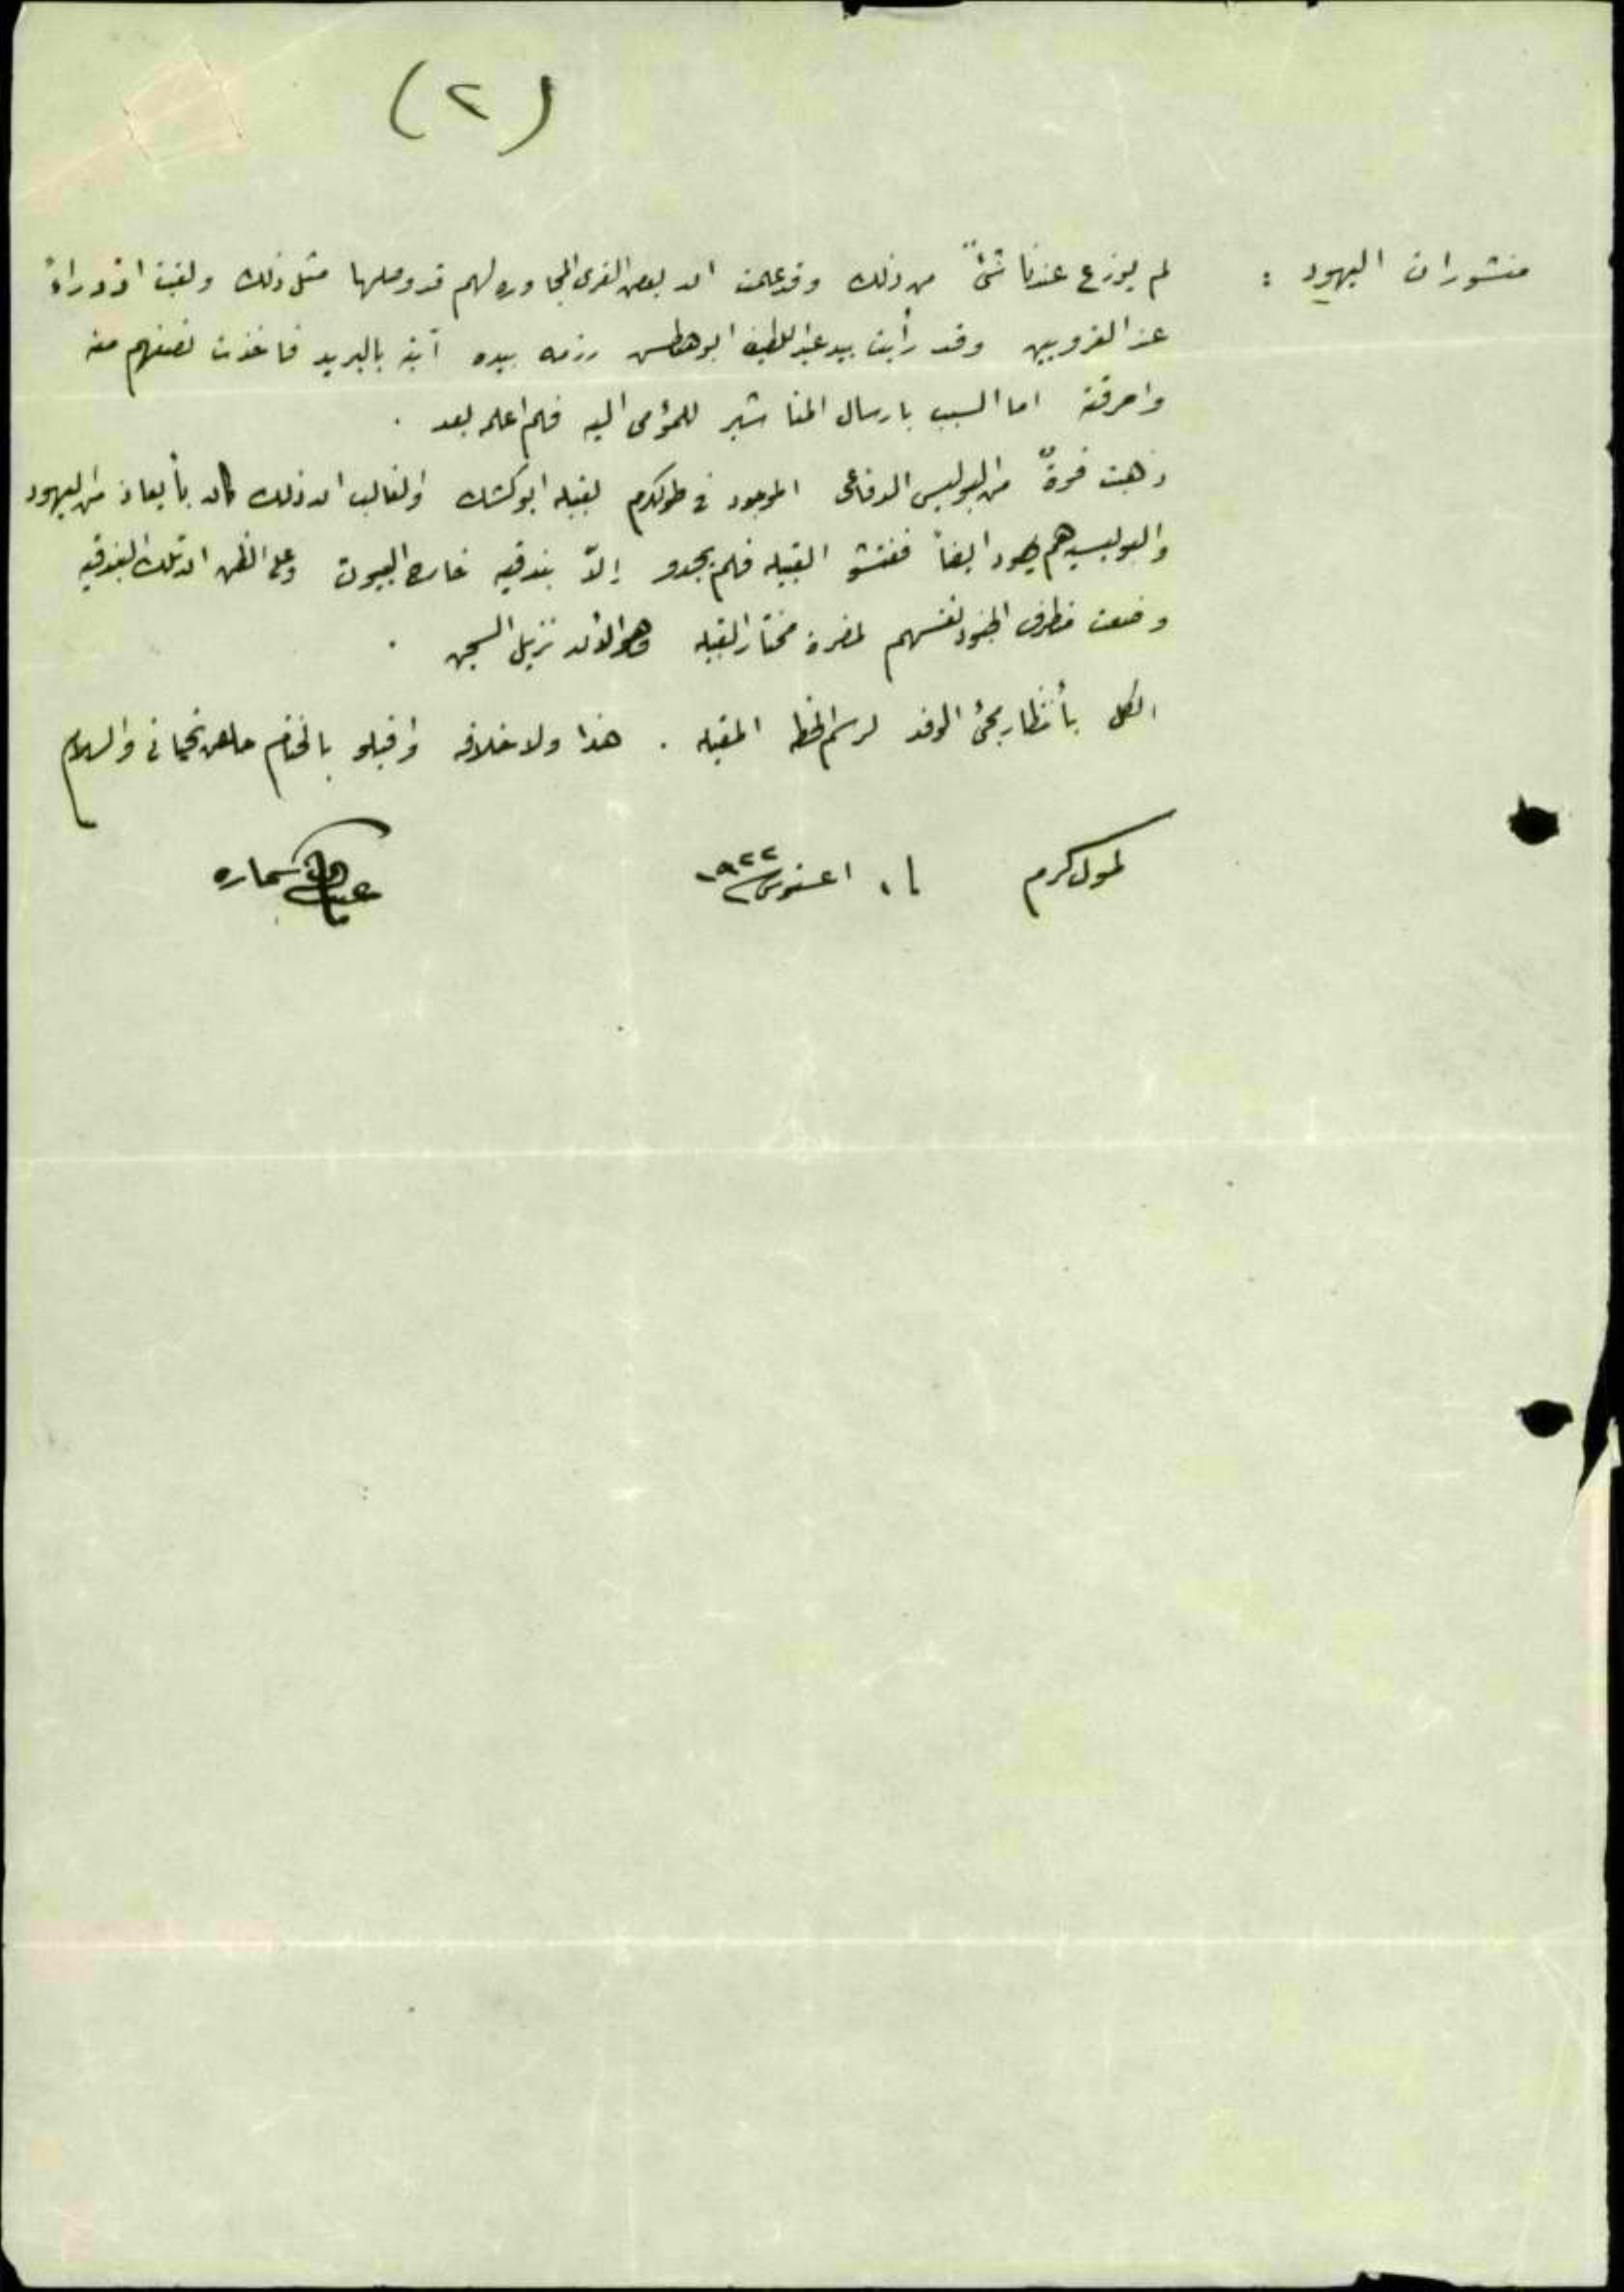 (٢)
منشورات اليهود : لم يوزع عندنا شئً من ذلك وقد علمت ان بعض القرى المجاوره لهم قد وصلها مثل ذلك ولقيت ازدراءً
عند القرويين وقد رأيت بيد عبد اللطيف ابو هنطش رزمه بيده آتية بالبريد فاخذت نصفهم منه
واحرقته اما السبب بارسال المناشير للمؤمى اليه فلم اعلمه بعد .
ذهبت قوةٌ من البوليس الدفاعى الموجود فى طولكرم لقبيله ابو كشك والغالب ان ذلك كان بأيعاز من اليهود
والبوليس هم يهود ايضاً ففتشو القبيله فلم يجدو إلاّ بندقيه خارج البيوت وعلى الظن ان تلك البندقيه
وضعت من طرف الجنود نفسهم لمضرة مختار القبيله وهو الأن نزيل السجن .
الكل بأنتظار مجئ الوفد لرسم الخطه المقبله . هذا ولا خلافه واقبلو بالختام خالص تحياتى والسلام
طولكرم اغستوس ١٩٢٢
سماره